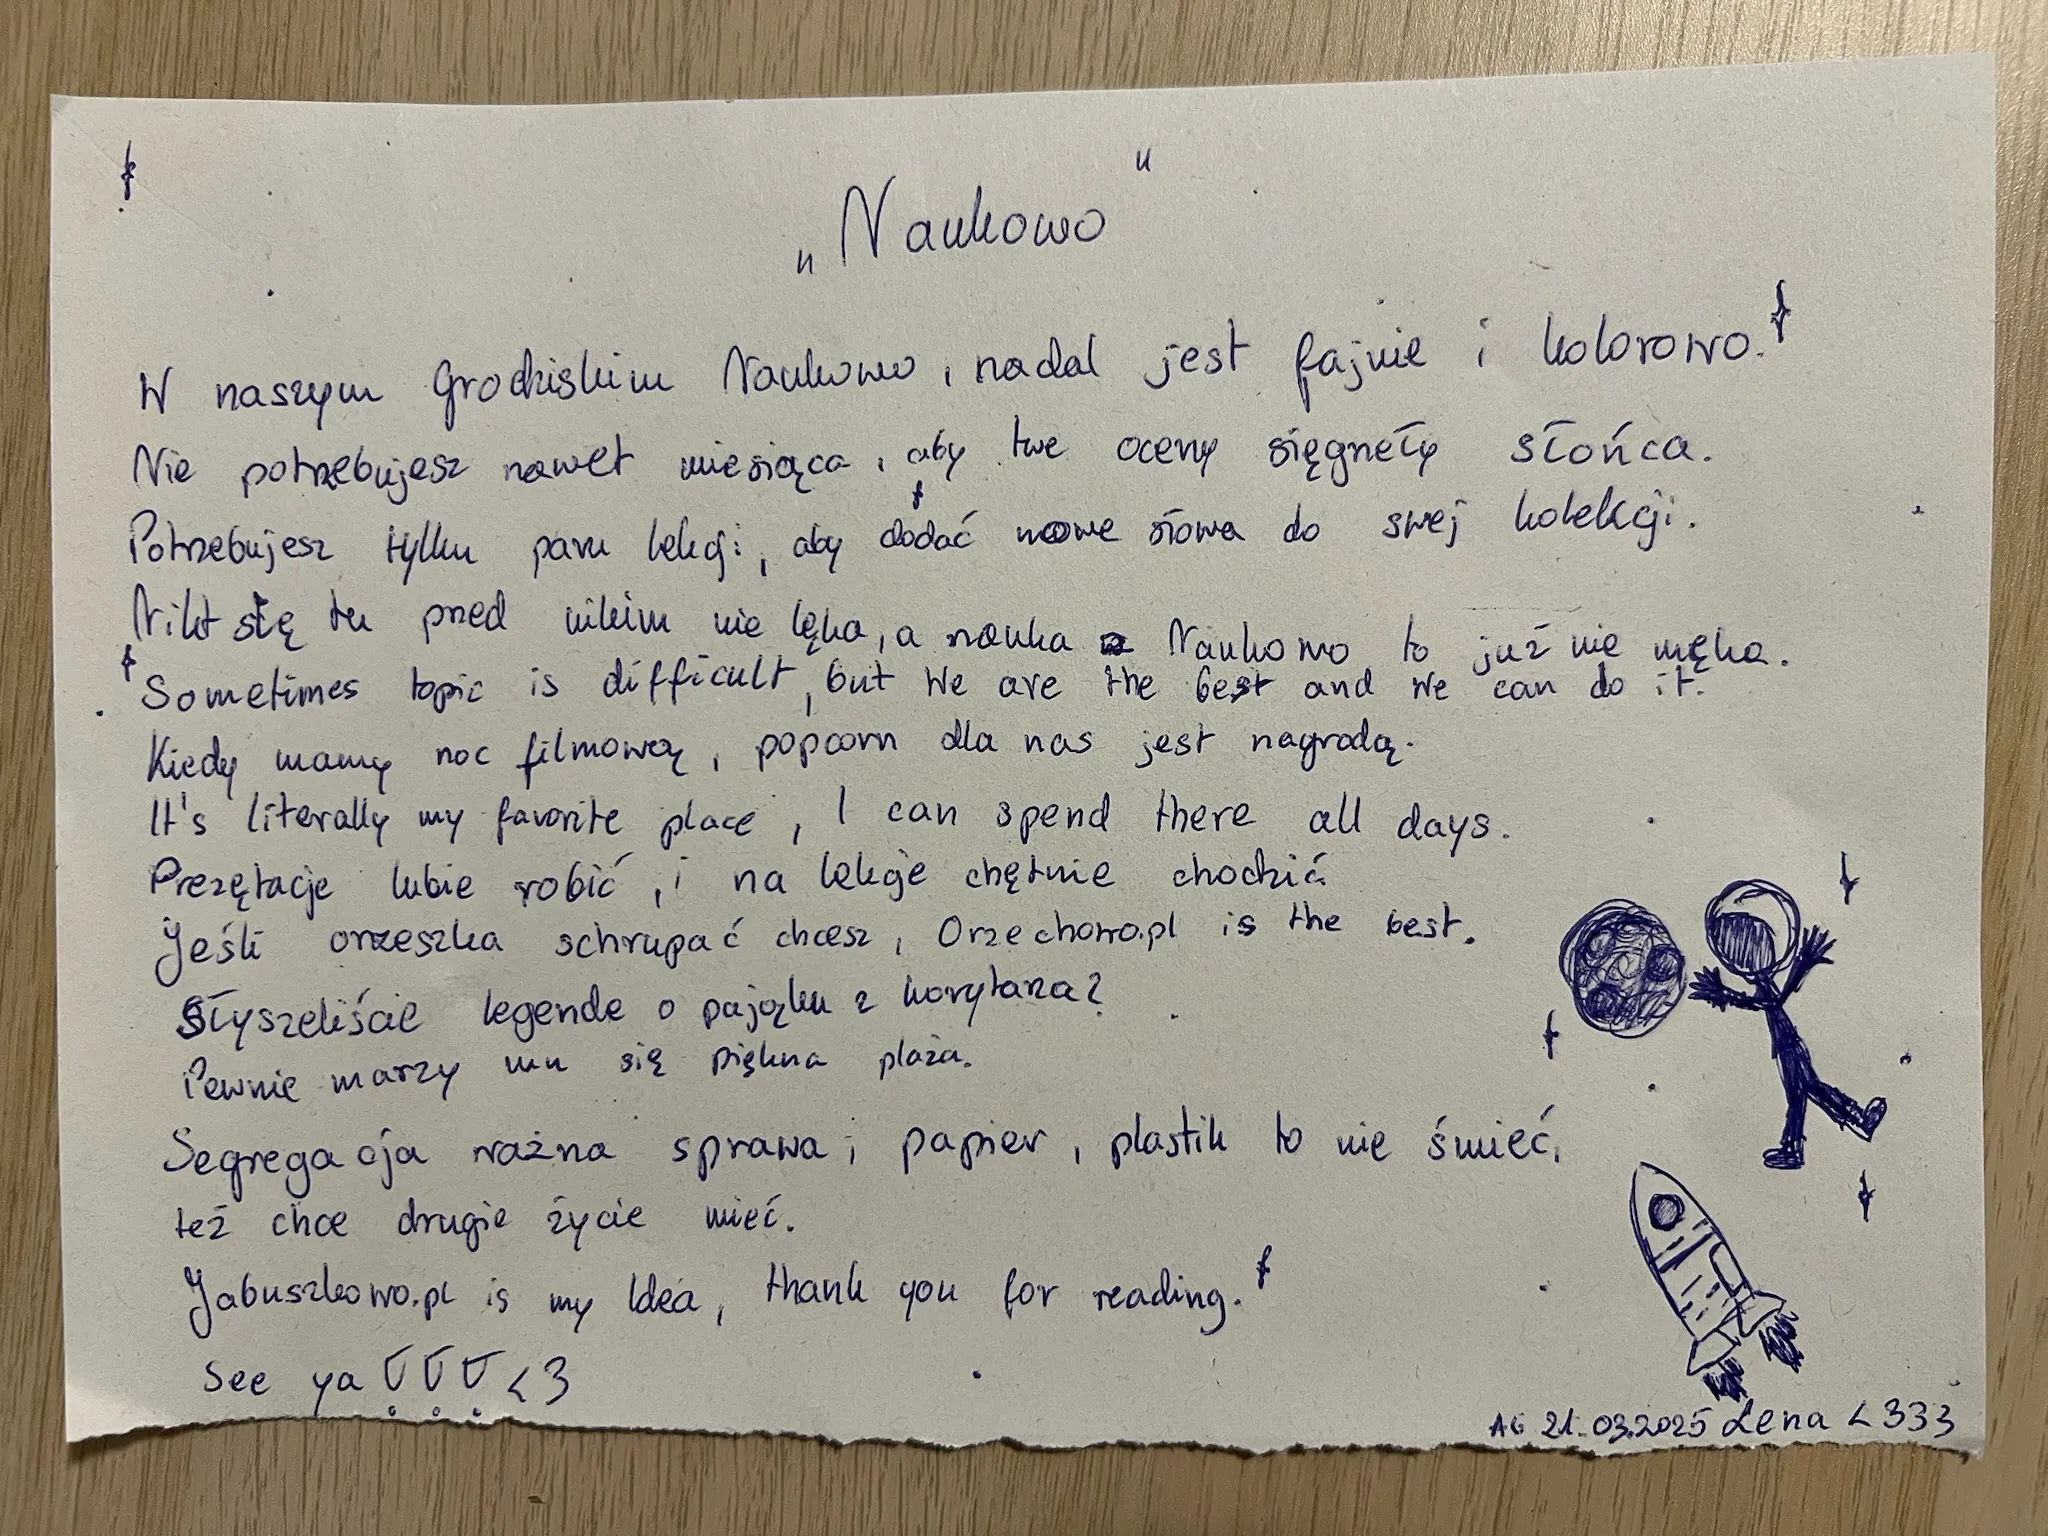 „Naukowo"
W naszym Grodziskim Naukowo, nadal jest fajnie i kolorowo.
Nie potrzebujesz nawet miesiąca, aby twe oceny sięgnęły słońca.
Potrzebujesz tylku paru lekcji, aby dodać nowe słowa do swej kolekcji.
Nikt się tu przed nikim nie lęka, a nauka Naukowo to już nie męka.
Sometimes topic is difficult, but we are the best and we can do it.
Kiedy mamy noc filmową, popcorn dla nas jest nagrodą.
It's literally my favorite place, I can spend there all days.
Prezętacje lubie robić, i na lekcje chętnie chodzić
Jeśli orzeszka schrupać chcesz, Orzechowo.pl is the best.
Słyszeliście legende o pająku z korytarza?
Pewnie marzy mu się piękna plaża.
Segregacja ważna sprawa; papier, plastik to nie śmieć,
też chce drugie życie mieć.
Jabuszkowo.pl is my Idea, thank you for reading.
See ya !!! <3
AG 21.03.2025 Lena <333